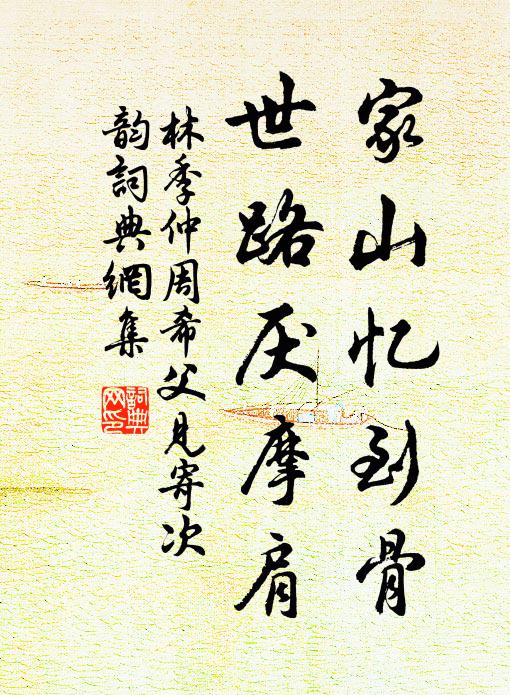 家山忆到骨
世路厌摩肩
林季仲周希父见寄次
韵詞典網集
詞典
网印